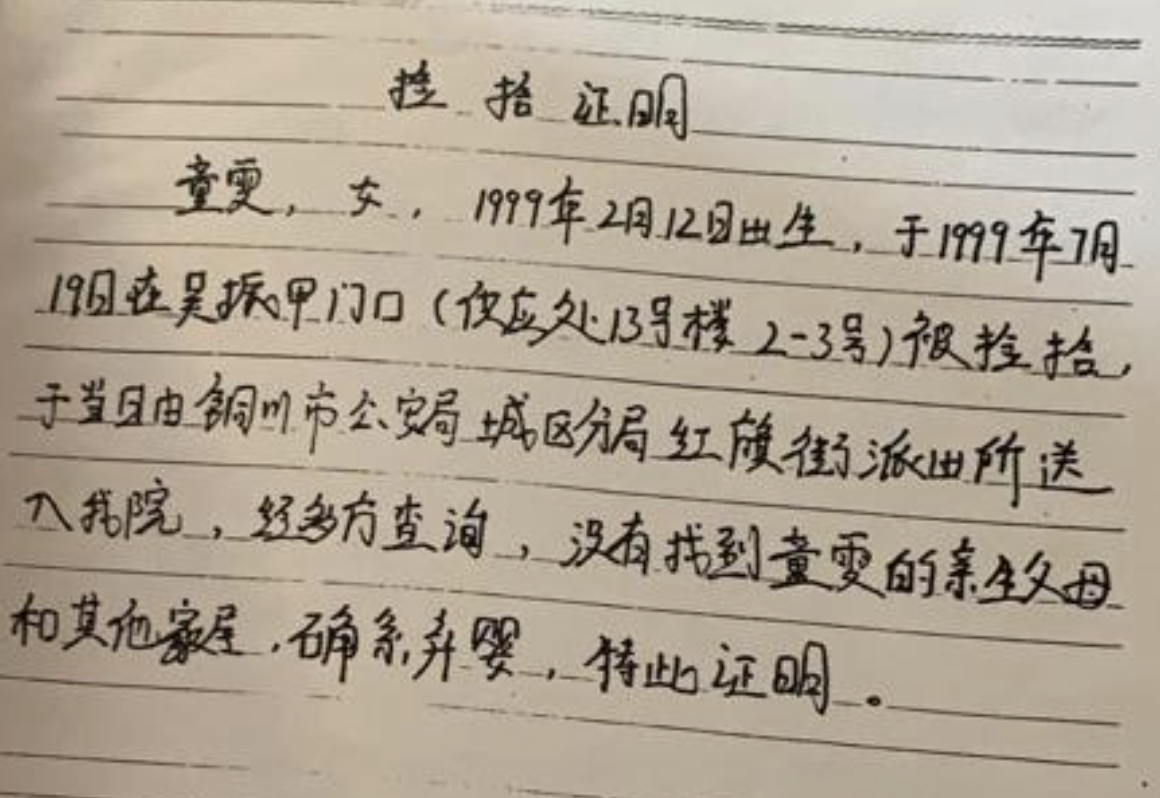 捡拾证明
童雯，女，1999年2月12日出生，于1999年7月
19日在吴振甲门口（供应处13号楼 2-3号）被捡拾，
于当日由铜川市公安局城区分局红旗街派出所送
入我院，经多方查询，没有找到童雯的亲生父母
和其他家属，确系弃婴，特此证明。